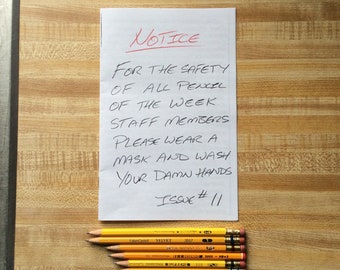 NOTICE
FOR THE SAFETY
OF ALL PENCIL
OF THE WEEK
STAFF MEMBERS
PLEASE WEAR A
MASK AND WASH
YOUR DAMN HANDS
ISSUE # 11